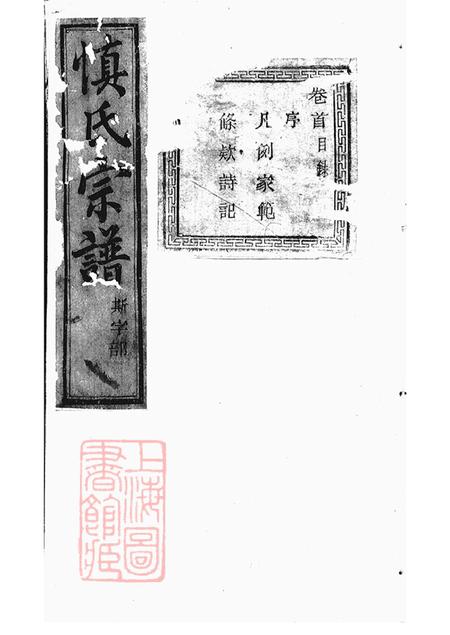 慎氏宗譜
斯字部
卷首目錄
序
凡例家範
條欵詩記
上海圖
書館藏